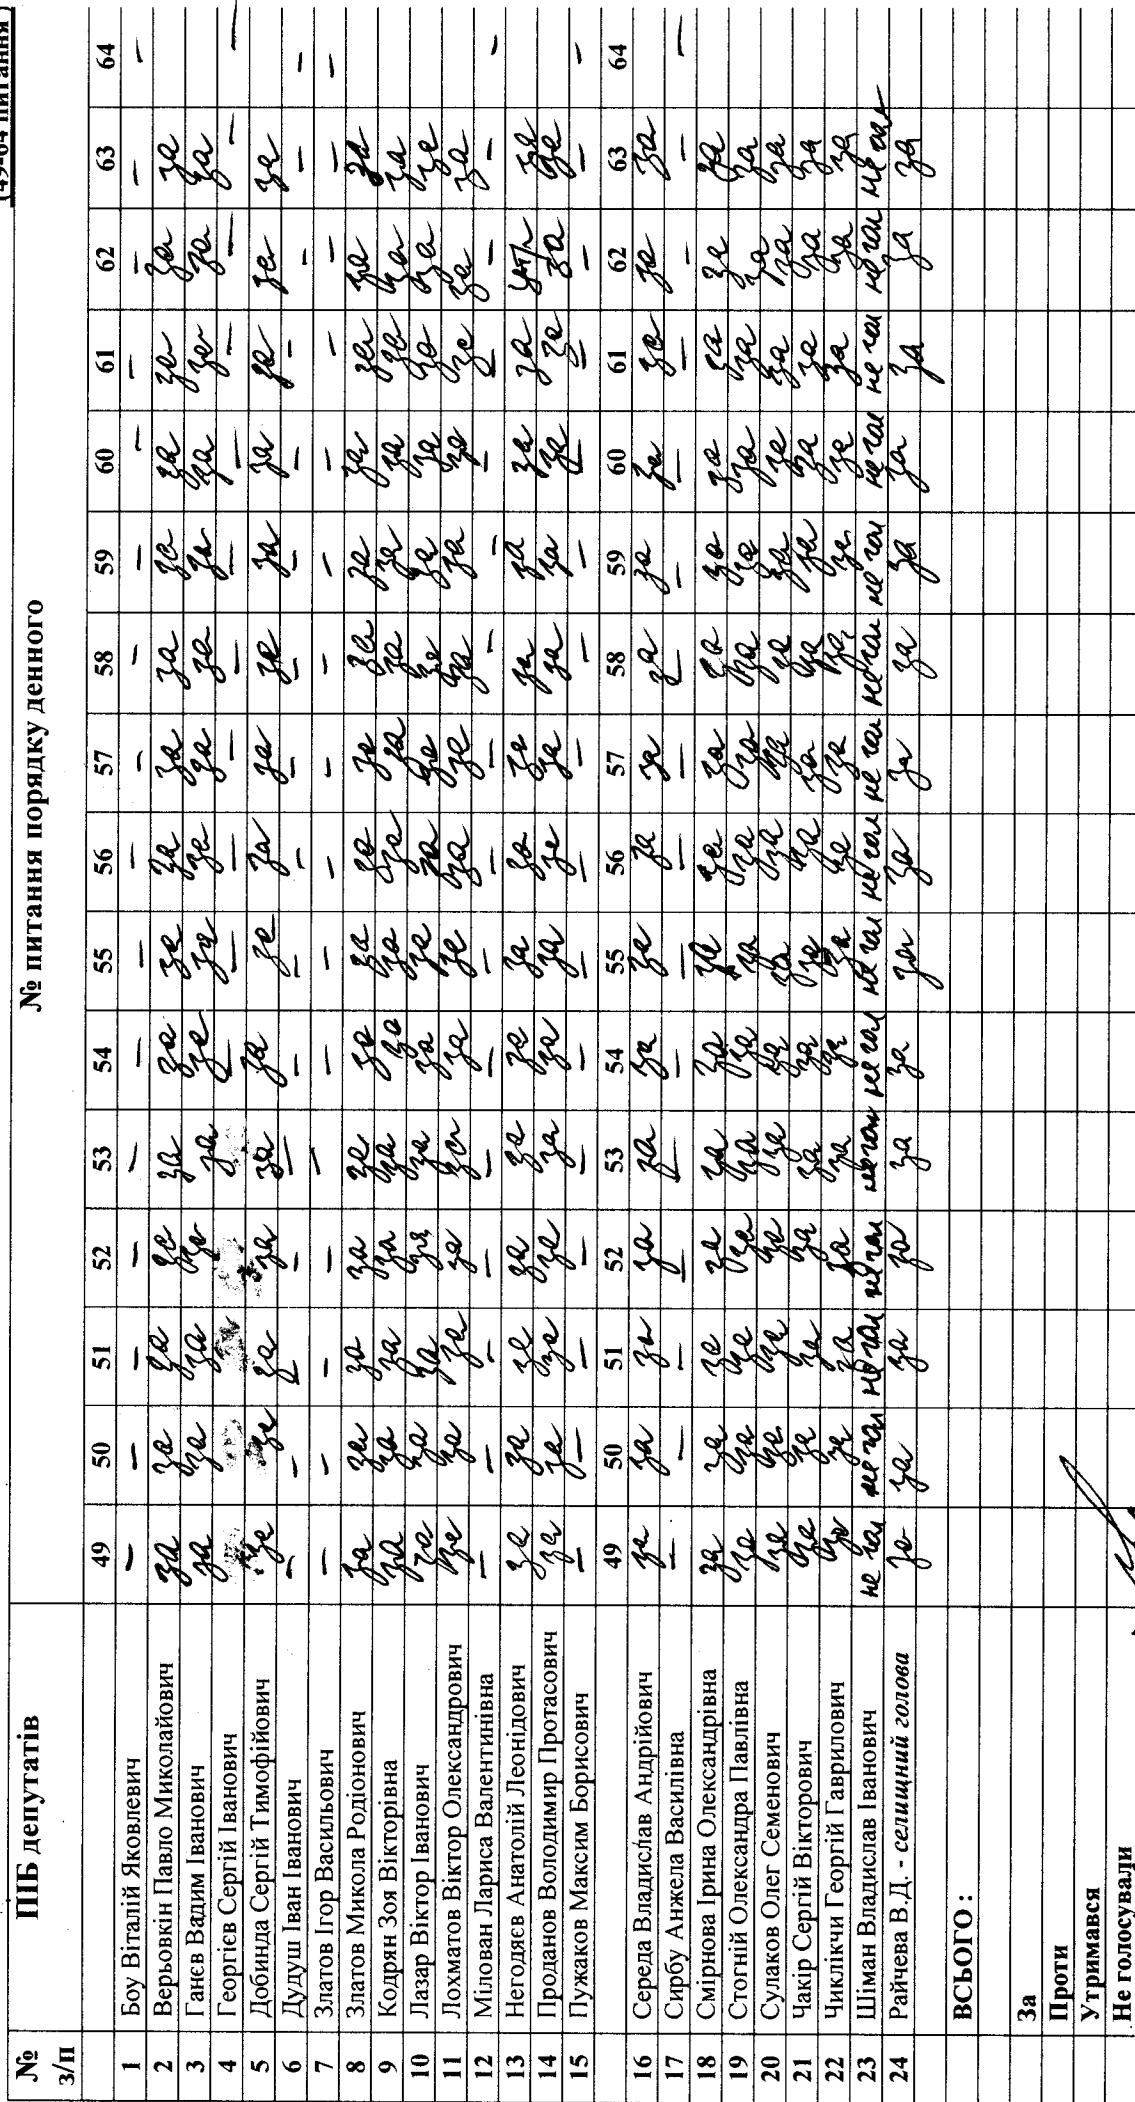 (49-64 питання)
№ питання порядку денного
№ з/п ПІБ депутатів
49 50 51 52 53 54 55 56 57 58 59 60 61 62 63 64
1 Боу Віталій Яковлевич – – – – – – – – – – – – – – – –
2 Верьовкін Павло Миколайович за за за за за за за за за за за за за за за
3 Ганєв Вадим Іванович за за за за за за за за за за за за за за за
4 Георгієв Сергій Іванович – – – – – – – – – – –
5 Добинда Сергій Тимофійович за за за за за за за за за за за за за за за
6 Дудуш Іван Іванович – – – – – – – – – – – – – – – –
7 Златов Ігор Васильович – – – – – – – – – – – – – – – –
8 Златов Микола Родіонович за за за за за за за за за за за за за за за
9 Кодрян Зоя Вікторівна за за за за за за за за за за за за за за за
10 Лазар Віктор Іванович за за за за за за за за за за за за за за за
11 Лохматов Віктор Олександрович за за за за за за за за за за за за за за за
12 Мілован Лариса Валентинівна – – – – – – – – – – – – – – – –
13 Негодяєв Анатолій Леонідович за за за за за за за за за за за за за утр за
14 Проданов Володимир Протасович за за за за за за за за за за за за за за за
15 Пужаков Максим Борисович – – – – – – – – – – – – – – – –
49 50 51 52 53 54 55 56 57 58 59 60 61 62 63 64
16 Середа Владислав Андрійович за за за за за за за за за за за за за за за
17 Сирбу Анжела Василівна – – – – – – – – – – – – – – – –
18 Смірнова Ірина Олександрівна за за за за за за за за за за за за за за за
19 Стогній Олександра Павлівна за за за за за за за за за за за за за за за
20 Сулаков Олег Семенович за за за за за за за за за за за за за за за
21 Чакір Сергій Вікторович за за за за за за за за за за за за за за за
22 Чиклікчи Георгій Гаврилович за за за за за за за за за за за за за за за
23 Шіман Владислав Іванович не гол не гол не гол не гол не гол не гол не гол не гол не гол не гол не гол не гол не гол не гол не гол
24 Райчева В.Д. - селищний голова за за за за за за за за за за за за за за за
ВСЬОГО :
За
Проти
Утримався
Не голосували